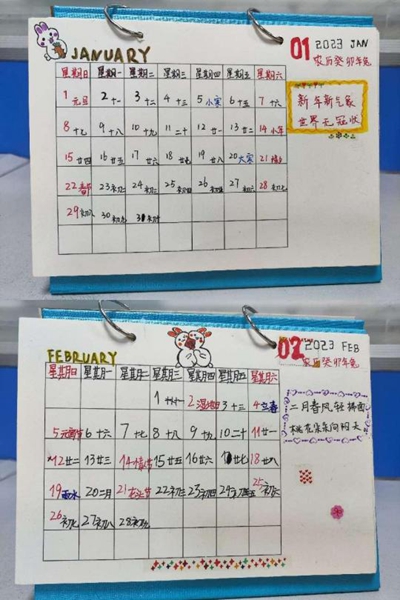 JANUARY
01 2023 JAN
农历癸卯年兔
星期日 星期一 星期二 星期三 星期四 星期五 星期六
1 元旦 2 十一 3 十二 4 十三 5 小寒 6 十五 7 十六
8 十七 9 十八 10 十九 11 二十 12 廿一 13 廿二 14 小年
15 廿四 16 廿五 17 廿六 18 廿七 19 廿八 20 大寒 21
22 春节 23 初二 24 初三 25 初四 26 初五 27 初六 28 初七
29 初八 30 初九 31 初十
新年新气象
世界无冠状
FEBRUARY
02 2023 FEB
农历癸卯年兔
星期日 星期一 星期二 星期三 星期四 星期五 星期六
1 十一 2 湿地日 3 十三 4 立春
5 元宵节 6 十六 7 十七 8 十八 9 十九 10 二十 11 廿一
12 廿二 13 廿三 14 情人节 15 廿五 16 廿六 17 廿七 18 廿八
19 雨水 20 二月 21 22 初三 23 初四 24 初五 25 初六
26 初七 27 初八 28 初九
二月春风轻拂面
桃花朵朵向阳天